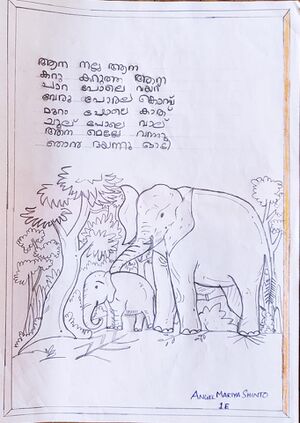 ആന നല്ല ആന
കറു കറുത്ത ആന
പാറ പോലെ വയർ
പോലെ കൊമ്പ്
മുറം പോലെ കാത്
ചൂല് പോലെ വാല്
ആന മെല്ലേ വന്നു
ഞാനു ഭയന്നു ഓടി
ANGEL MARIYA SHINTO
1E